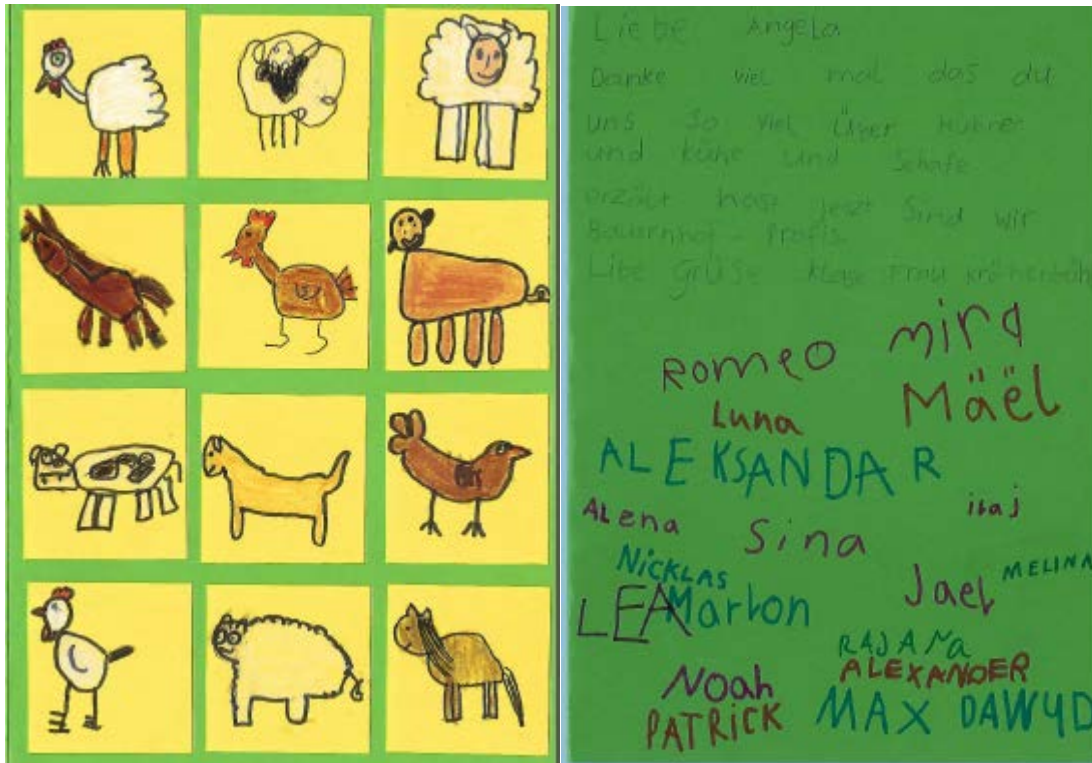 Liebe Angela
Danke viel mal das du
uns so viel über Hühner
und Kühe und Schafe
erzält hast jezt Sind wir
Bauernhof - Profis.
Libe Grüse Klase Frau
Romeo mira
Luna Mäël
ALEKSANDAR
ALena Sina
NiCKLAS Jael MELINA
LEA Marlon
RAJANa
Noah ALEXANDER
PATRiCK MAX DAWYD